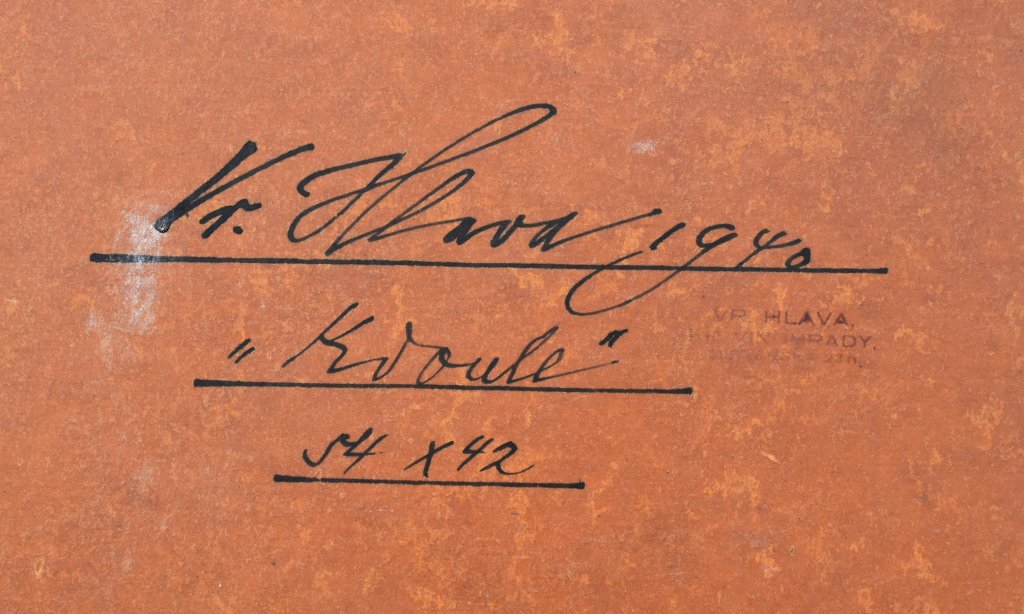 Vr. Hlava 1940
„Kdoule"
54 x 42
VR. HLAVA,
VINOHRADY,